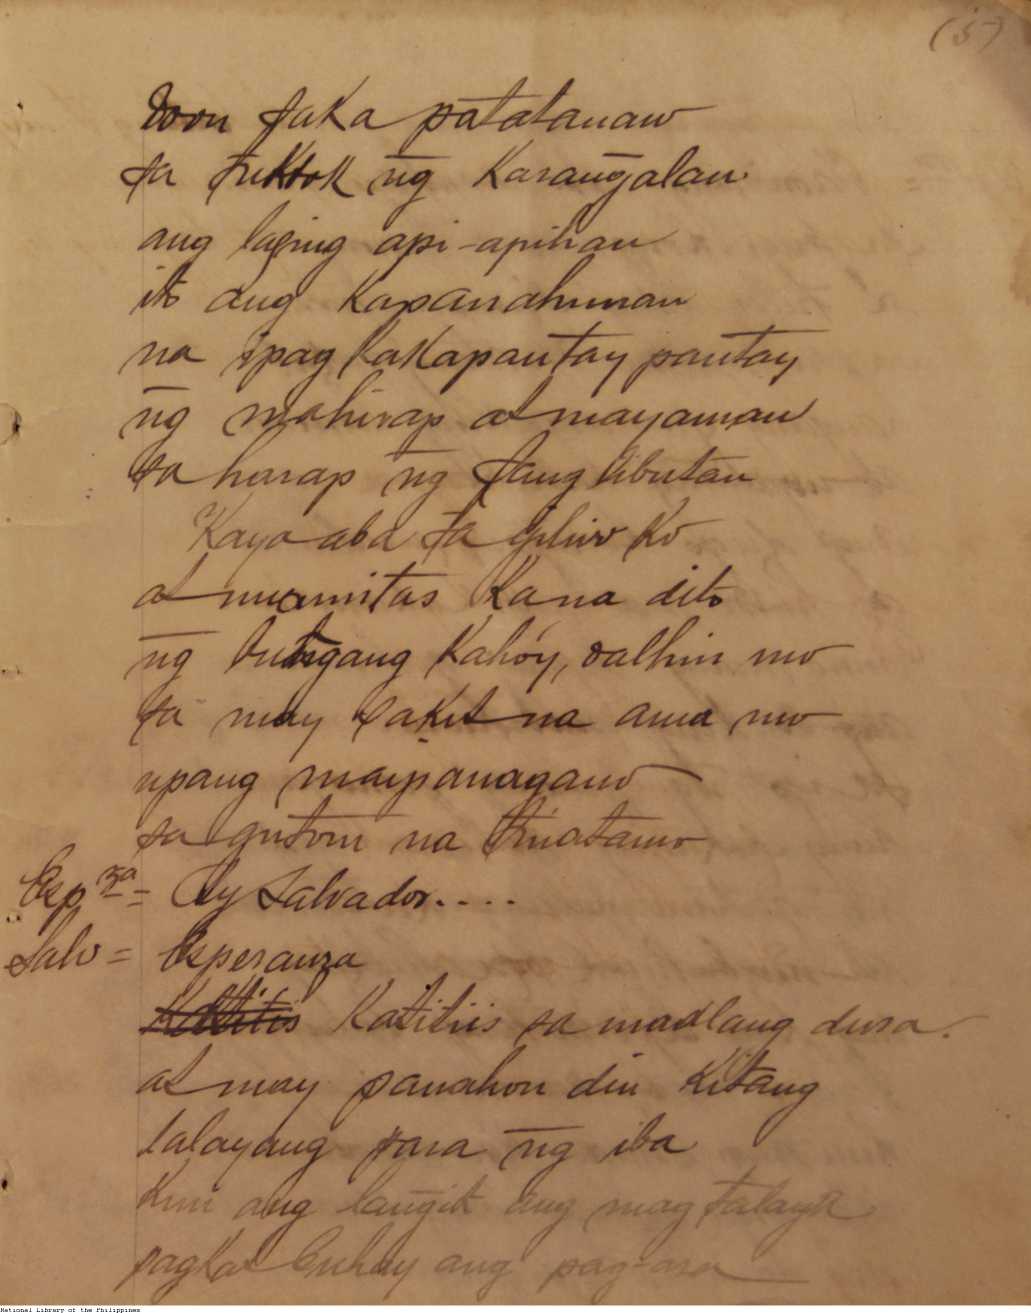 (5)
doon saka patatanaw
sa tuktok n̄g Karan̄galan
ang laging api-apihan
ito ang Kapanahunan
na ipag kakapantay pantay
n̄g mahirap at mayaman
sa harap n̄g sang libutan
Kaya aba sa giliw ko
at mamitas Kana dito
n̄g bungang Kahóy, dalhin mo
sa may sakit na ama mo
upang maipanagano
sa gutom na tinatamo
Espza = Ay Salvador....
Salv = Esperanza
Katitiis sa madlang dusa.
at may panahon din Kitang
lalayang para n̄g iba
Kun ang lan̄git ang mag talaga
pagkat buhay ang pag-asa
National Library of the Philippines